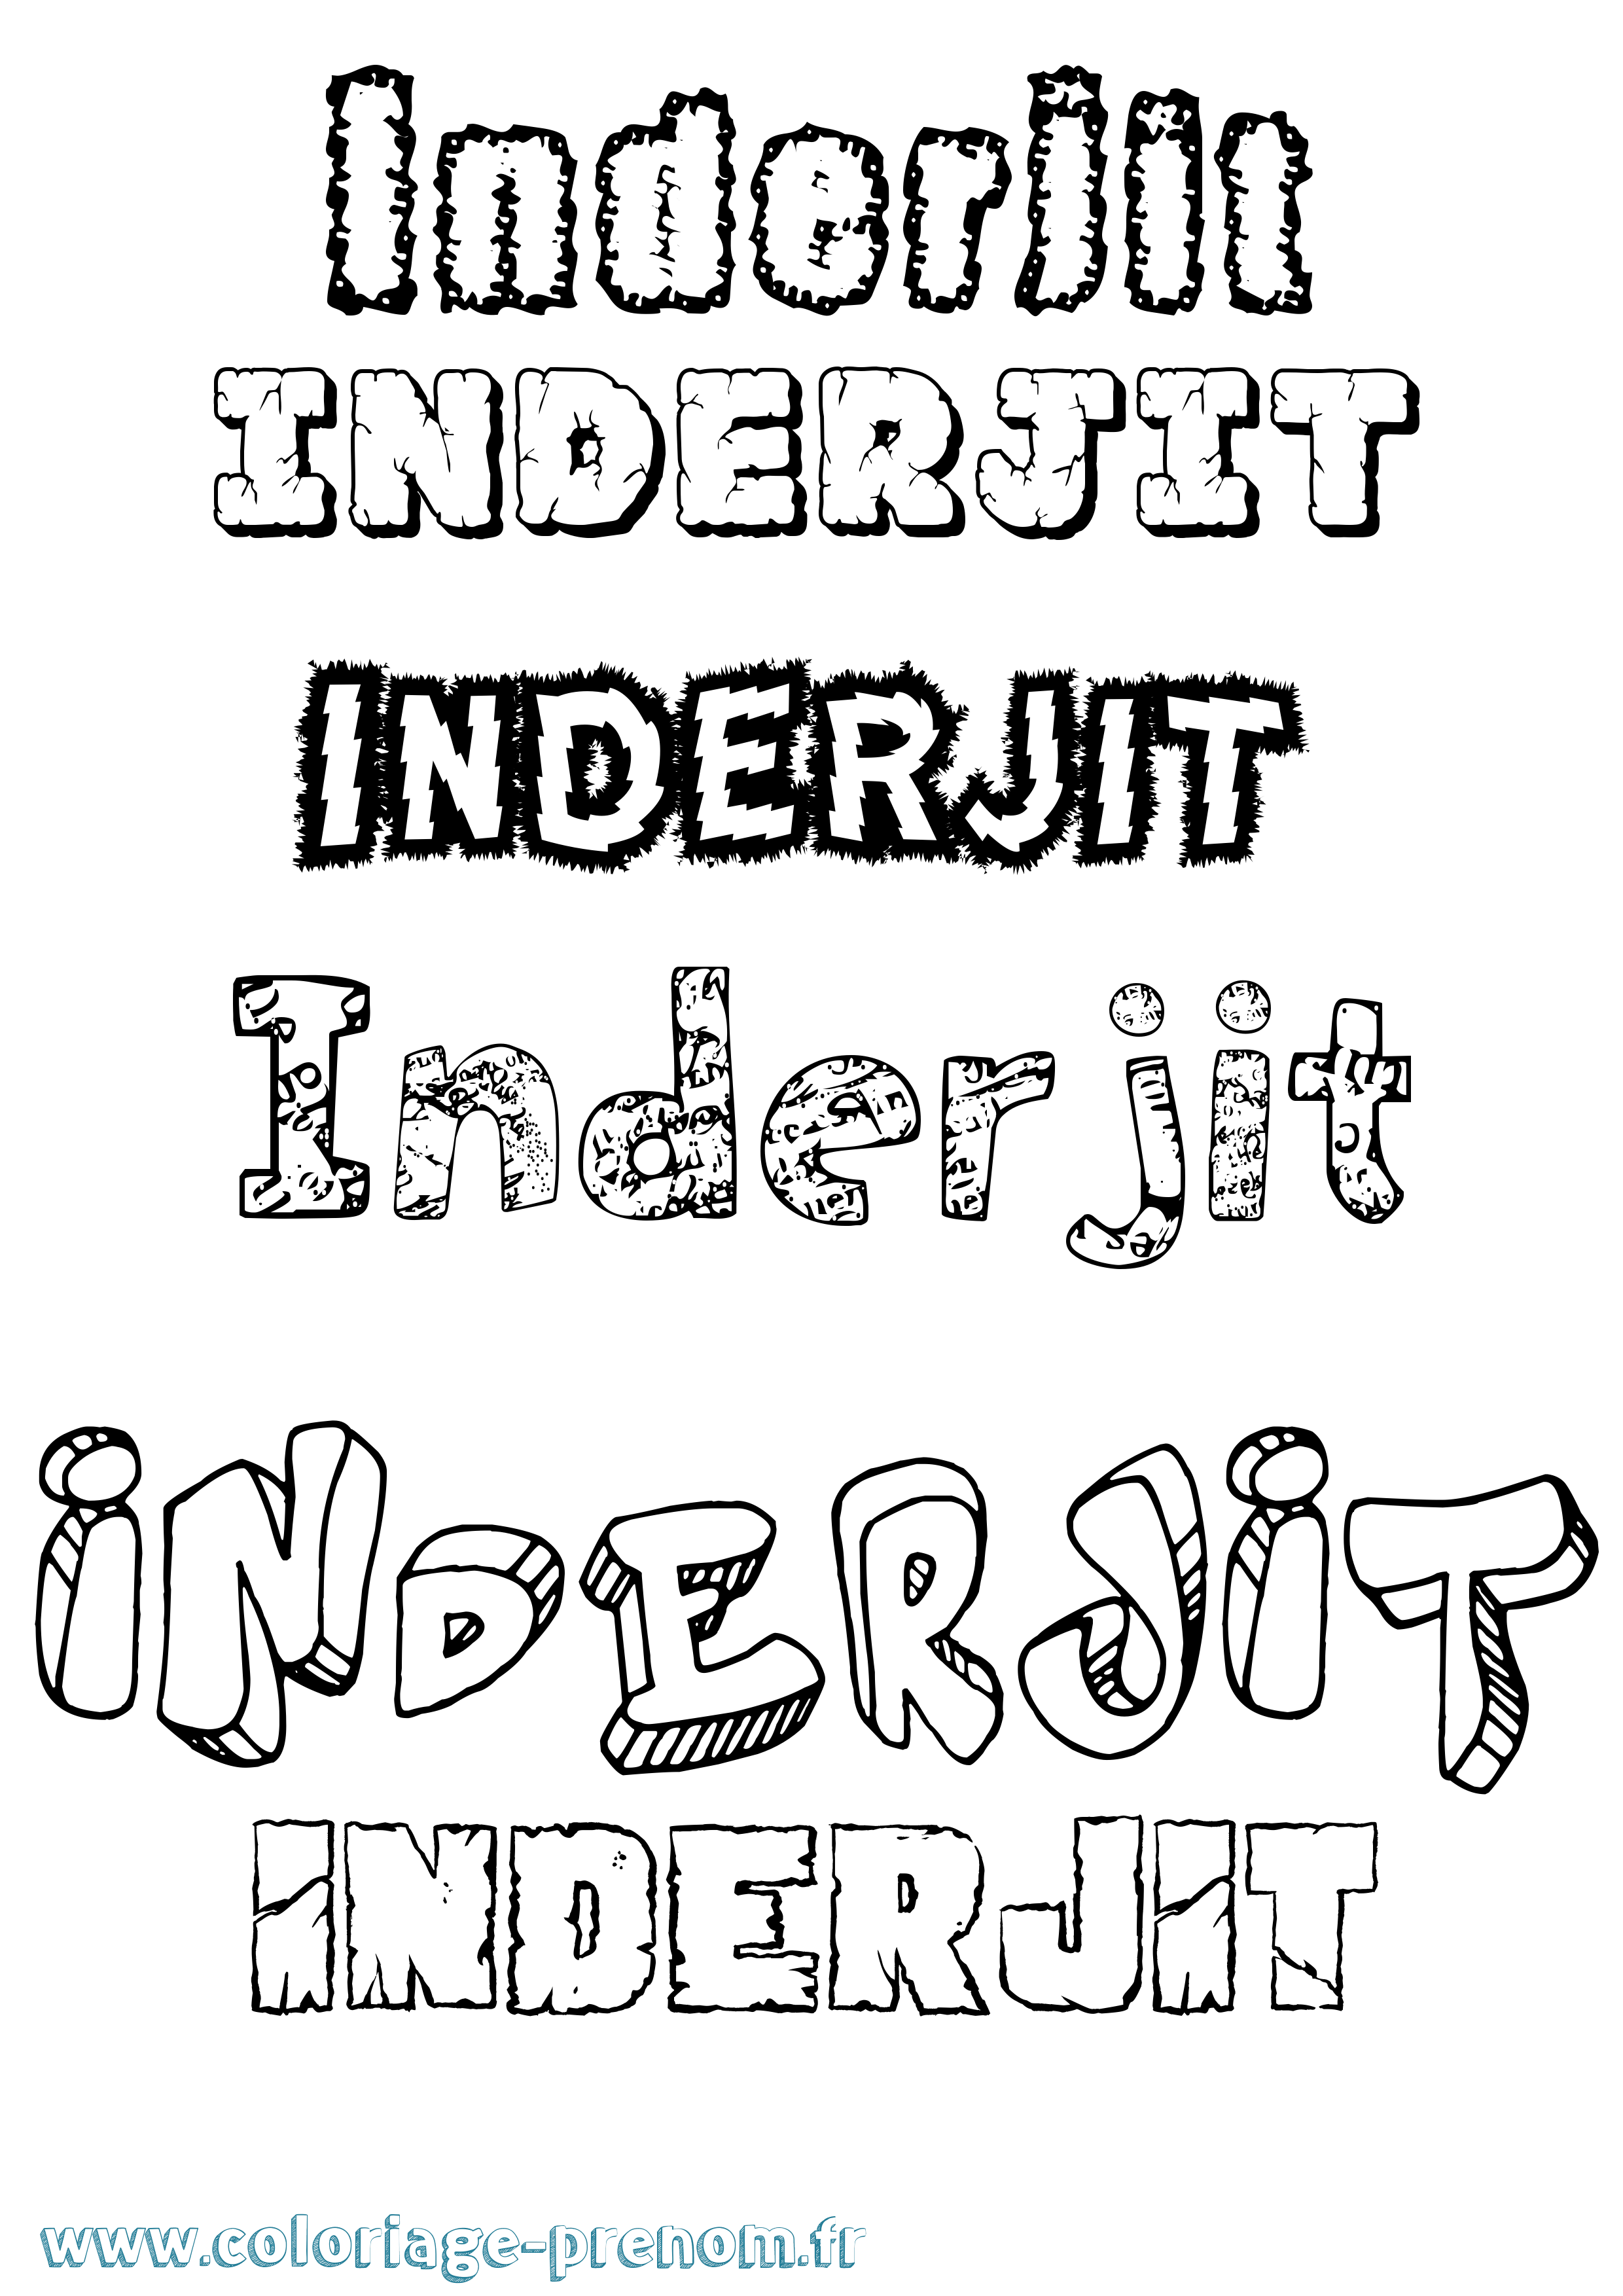 Inderjit
INDERJIT
INDERJIT
Inderjit
iNDERJiT
iNDERJiT
www.coloriage-prenom.fr